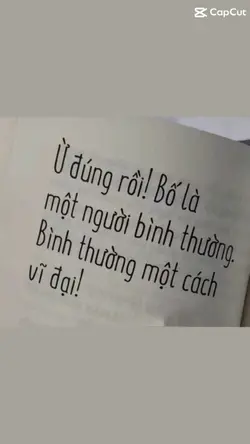 CapCut
Ừ đúng rồi! Bố là
một người bình thường.
Bình thường một cách
vĩ đại!